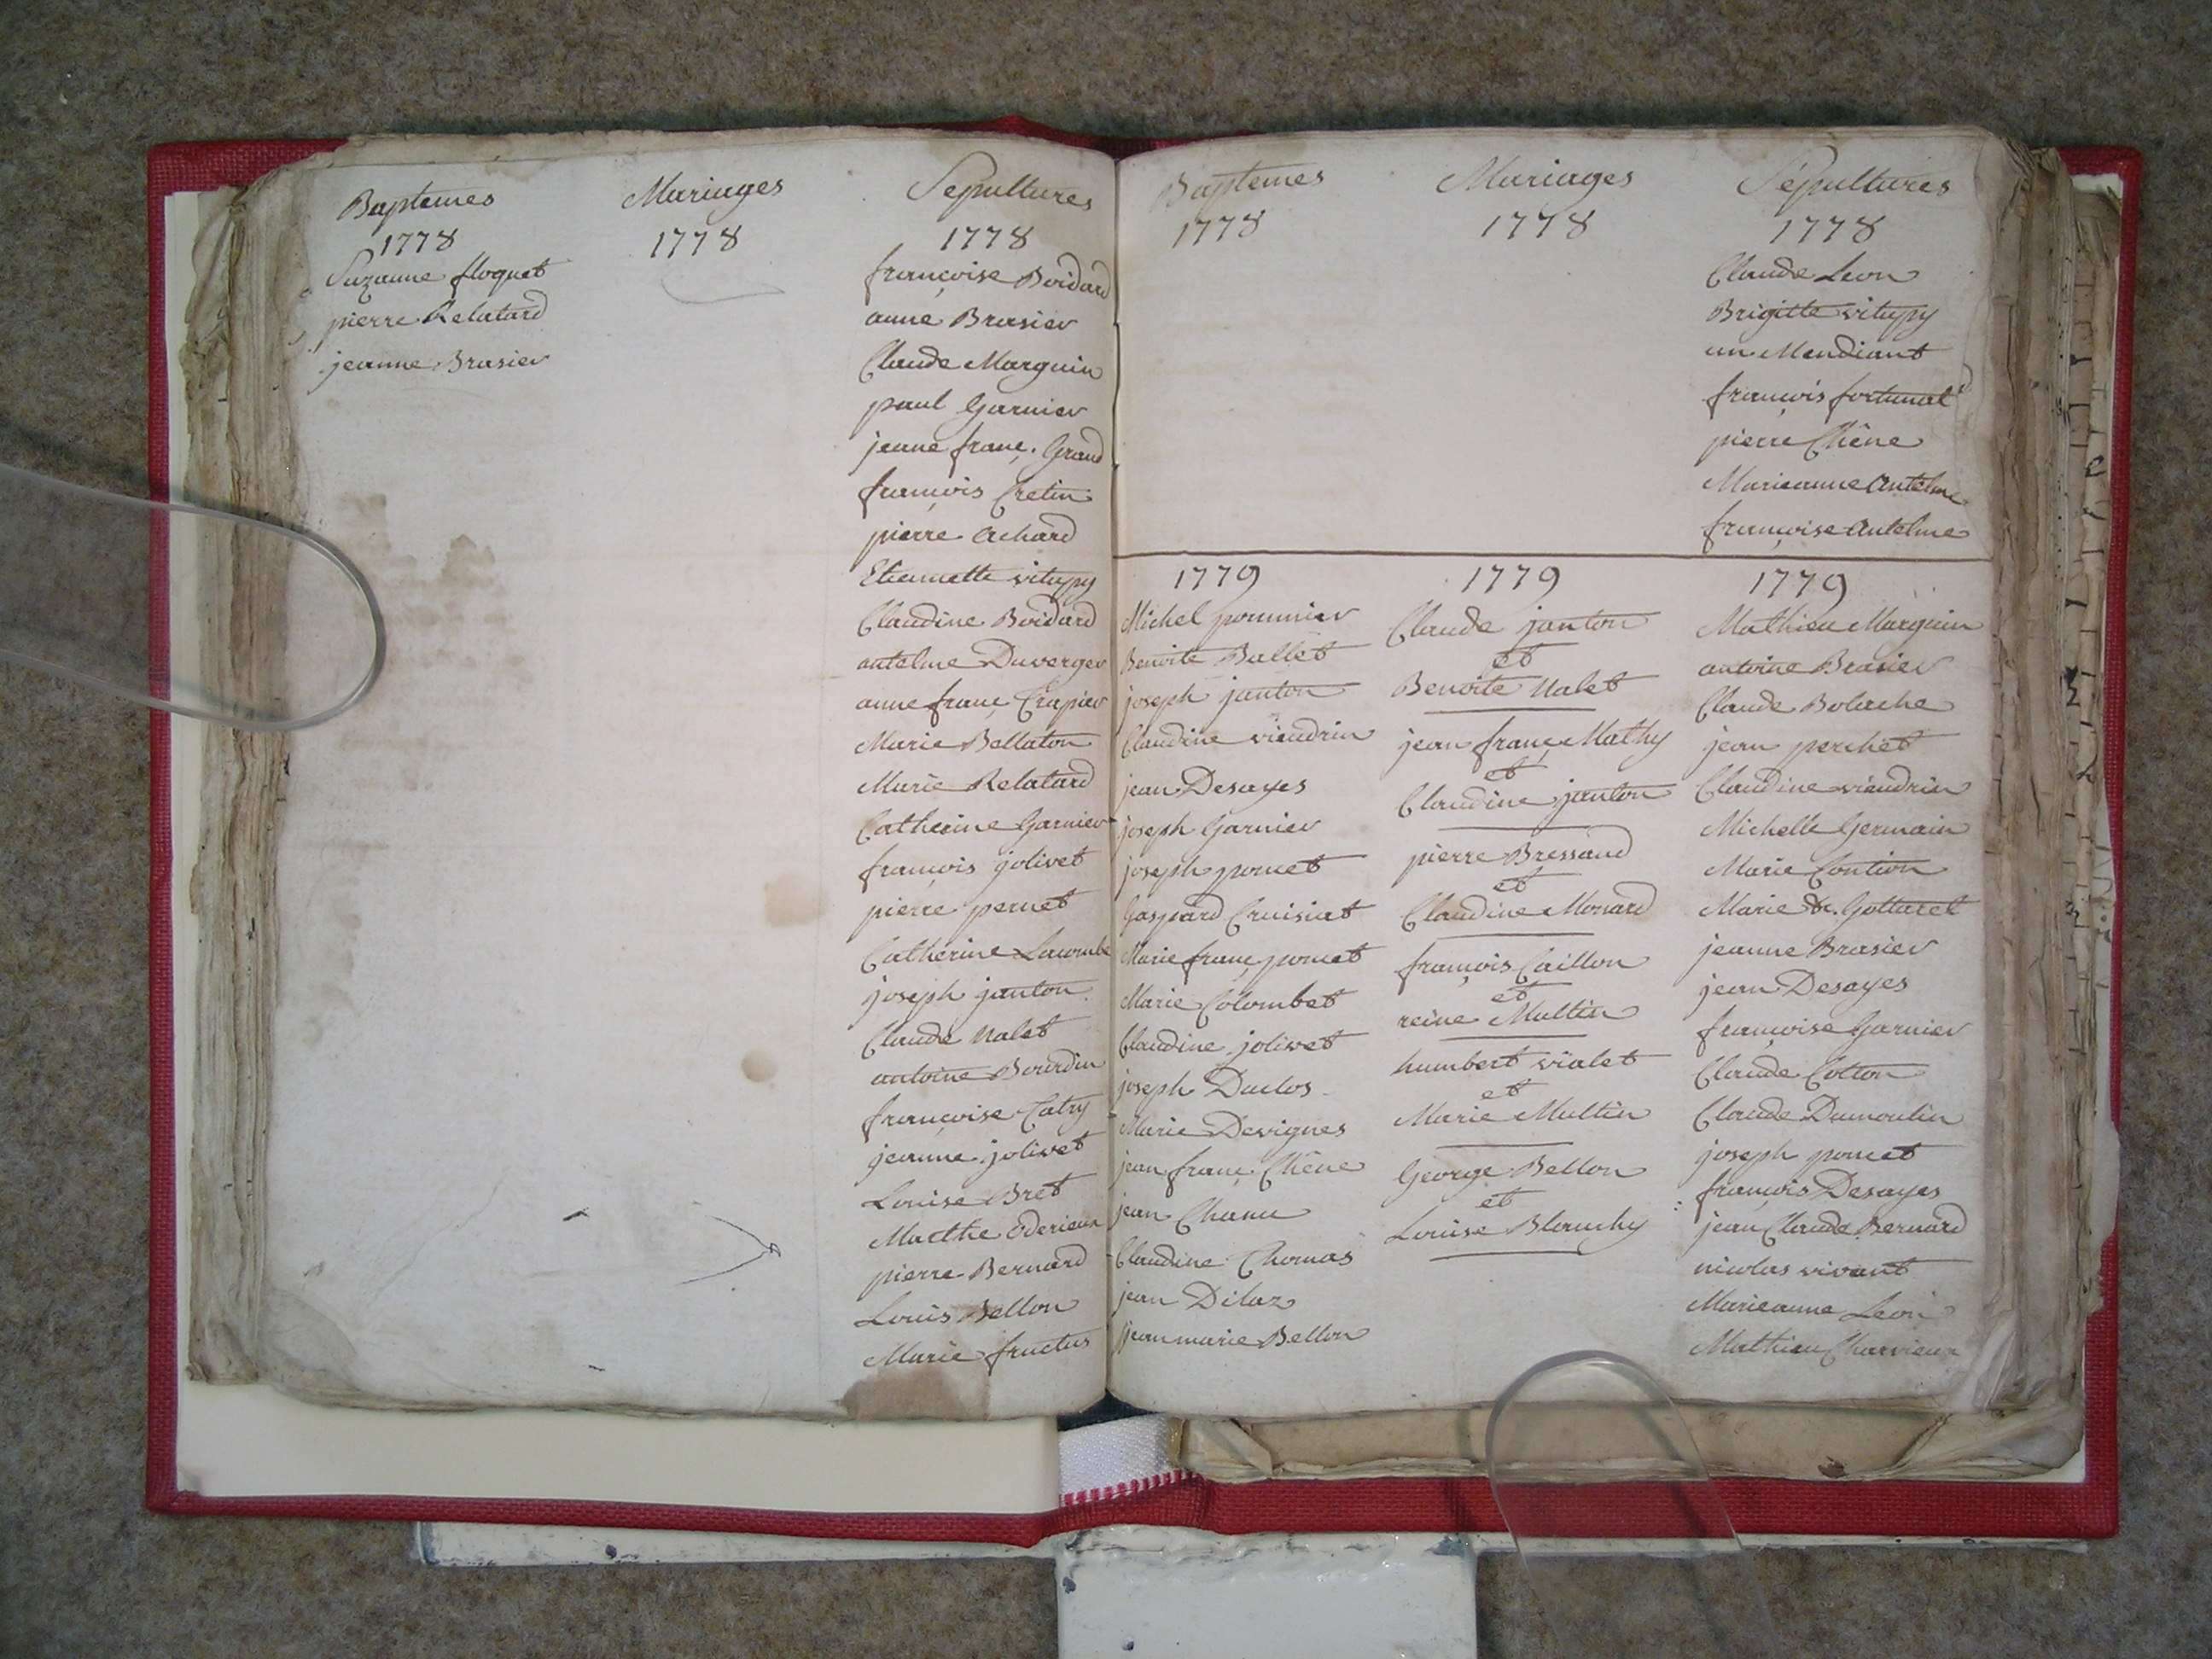 Baptemes
1778
Suzanne floquet
pierre Relatard
jeanne Brasier
Mariages
1778
Sepultures
1778
françoise Boidard
anne Brasier
Claude Marguin
paul Garnier
jeanne franç. Grand
françois Cretin
pierre Achard
Etiennette vitupy
Claudine Boidard
antelme Duverger
anne franç Crapier
Marie Bellaton
Marie Relatard
Catherine Garnier
françois jolivet
pierre pernet
Catherine Lacombe
joseph janton
Claude Nalet
antoine Bourdin
françoise Catry
jeanne jolivet
Louise Bret
Marthe Oderieux
pierre Bernard
Louis Bellon
Marie fructus
Baptemes
1778
Mariages
1778
Sépultures
1778
Claude Leon
Brigitte vitupy
un Mendiant
françois fortunat
pierre Chêne
Marieanne Antelme
françoise Antelme
1779
Michel pommier
Benoite Ballet
joseph janton
Claudine vieudrin
jean Desayes
joseph Garnier
joseph poncet
Gaspard Cruisiat
Marie franç poncet
Marie Colombet
Claudine jolivet
joseph Duclos
Marie Devignes
jean franç. Chêne
jean Chanu
Claudine Thomas
jean Dilaz
jean marie Bellon
1779
Claude janton
et
Benoite Nalet
jean franç Mathy
et
Claudine janton
pierre Bressand
et
Claudine Monard
françois Caillon
et
reine Multin
humbert vialet
et
Marie Multin
George Bellon
et
Louise Blanchy
1779
Mathieu Marguin
antoine Brasier
Claude Bolache
jean perchet
Claudine vieudrin
Michelle Germain
Marie Contion
Marie Gottaret
jeanne Brasier
jean Desayes
françoise Garnier
Claude Cotton
Claude Dumoulin
joseph poncet
françois Desayes
jean Claude Bernard
nicolas vivant
Marieanne Leon
Mathieu Charvieux